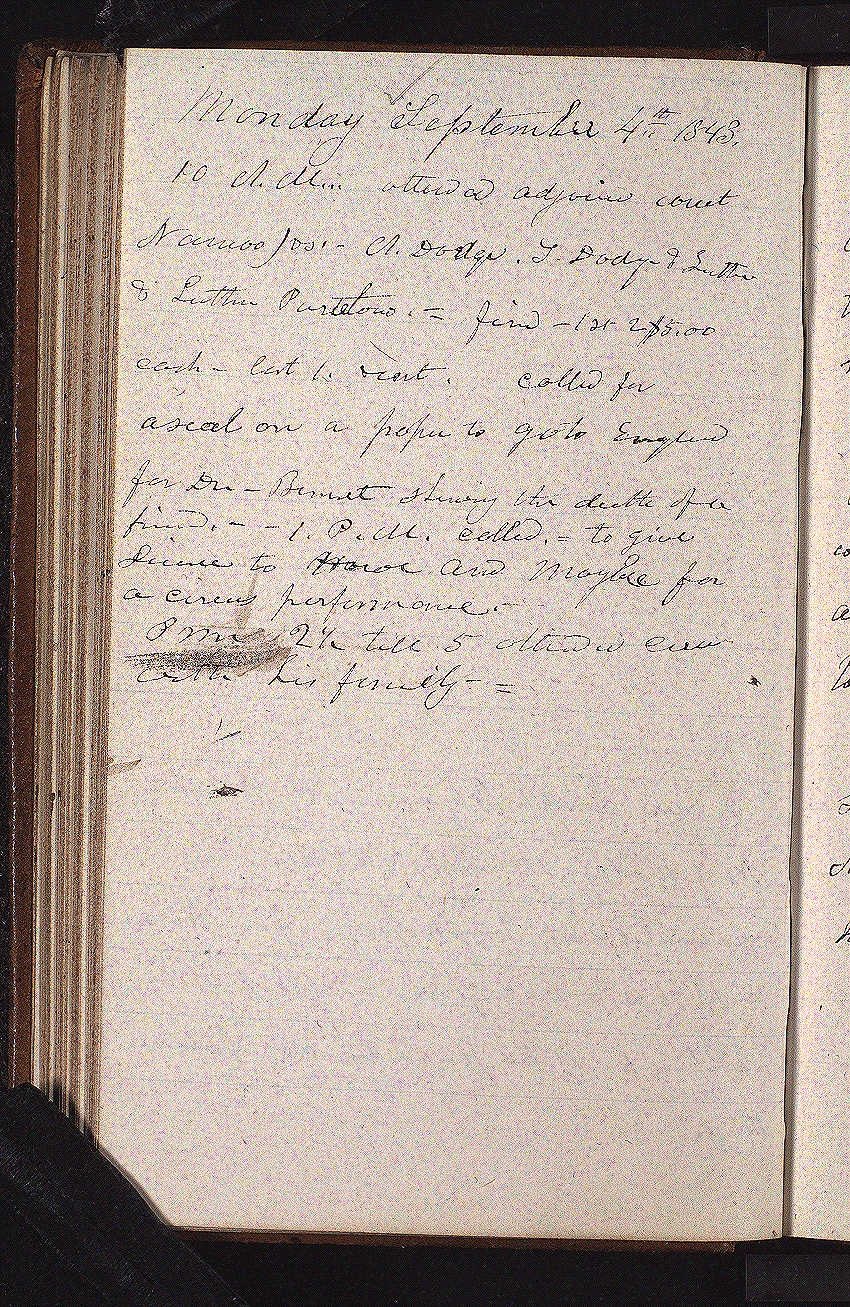 Monday September 4th 1843.
10 A.M.. attend adjoind court
Nauvoo vs:- A. Dodge. S. Dodge & Luther
& Luther Purtelow. = find - 1st 2 $5.00
cash - last 1. cost. called for
a seal on a paper to go to England
for Dr - Bennet shewing the death of a
friend. - - 1. P.M. called. = to give
license to Howe and Maybee for
a circus performance. -
P.M. 2½ till 5 attend circus
with his family - =